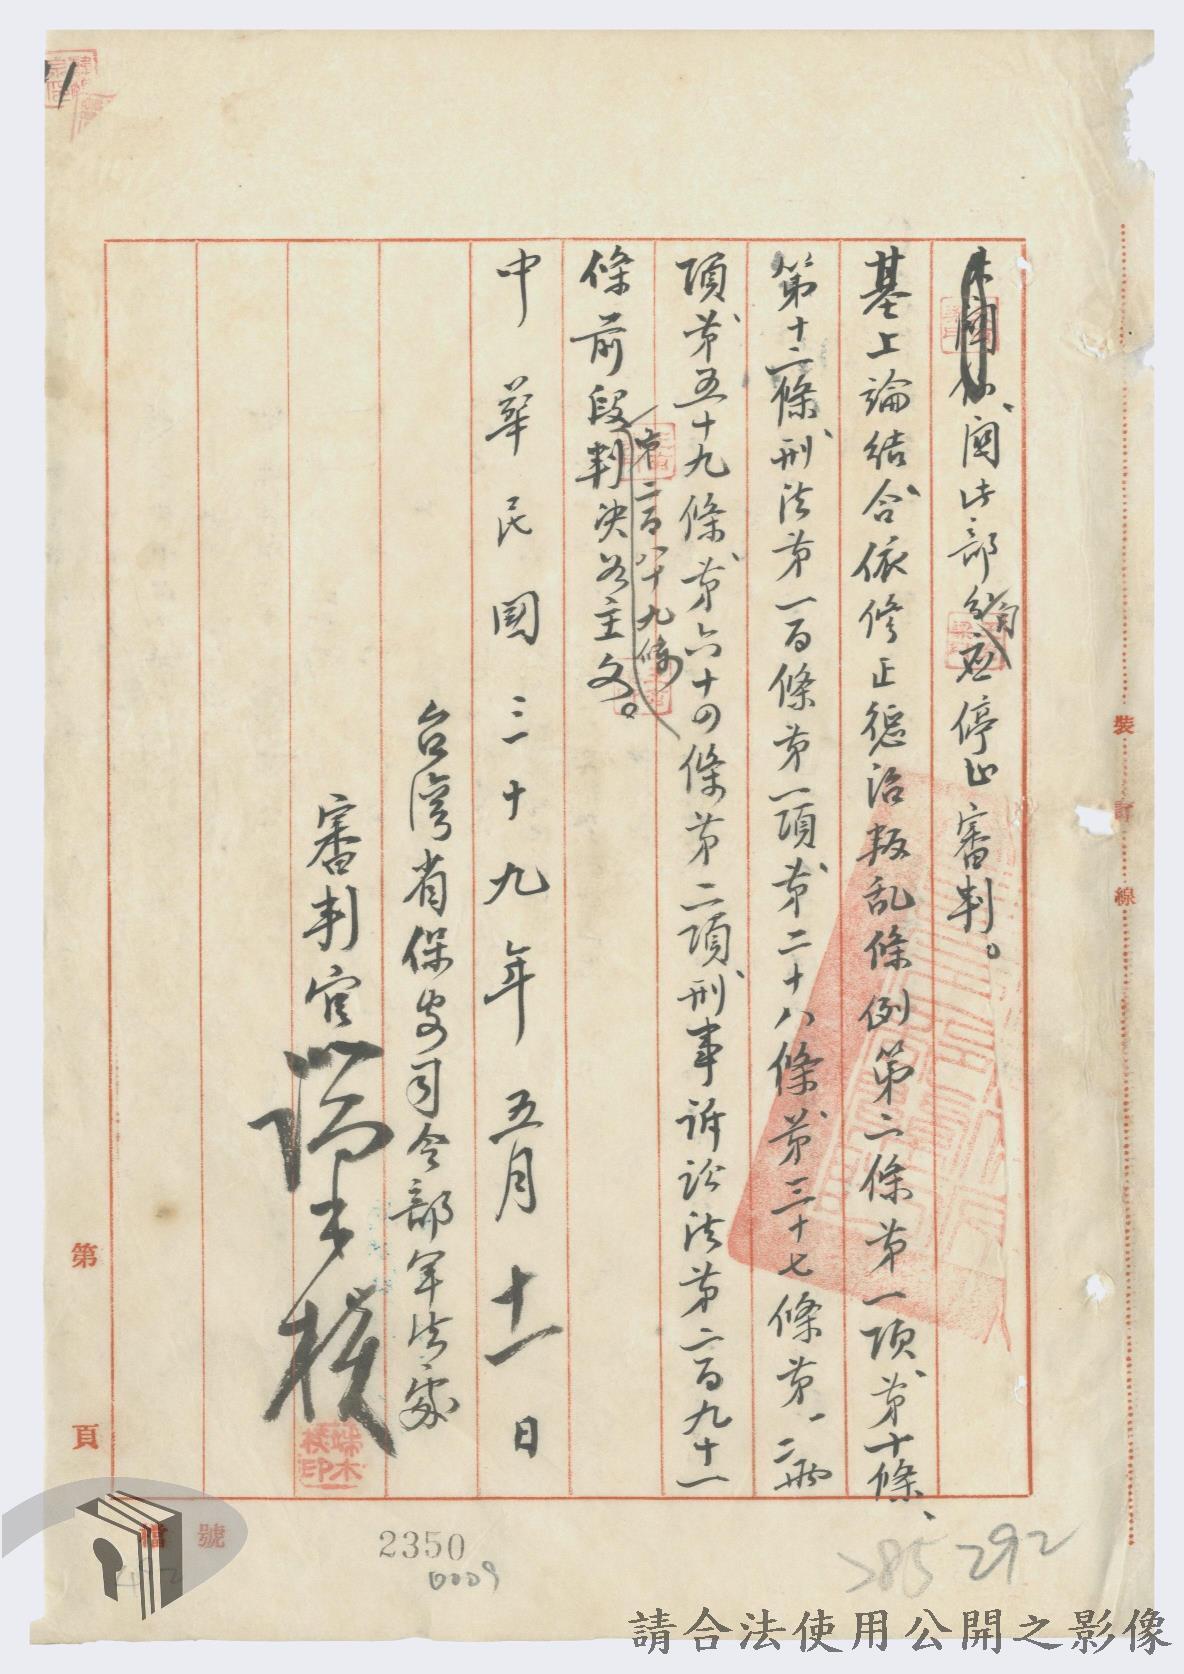 關此部分自應停止審判。
基上論結合依修正懲治叛乱條例第二條第一項第十條、
第十二條刑法第一百條第一項第二十八條第三十七條第一二兩
項第五十九條第六十四條第二項刑事訴訟法第二百九十一
條前段第二百八十九條判決如主文。
中華民國三十九年五月十一日
台灣省保安司令部軍法處
審判官端木棪
端木棪印
裝訂線
第頁
檔號
2350
0009
285 292
請合法使用公開之影像